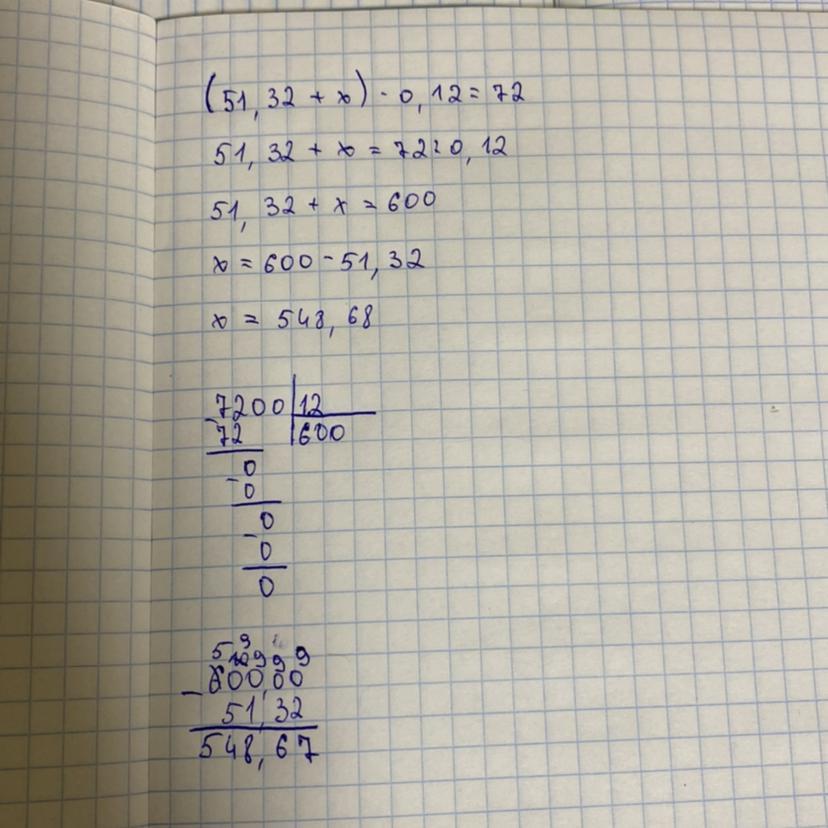 (51,32 + x) · 0,12 = 72
51,32 + x = 72:0,12
51,32 + x = 600
x = 600 - 51,32
x = 548,68
7200 | 12
- 72 | 600
0
- 0
0
- 0
0
5 9
10 9 9 9
600,00
- 51,32
548,67